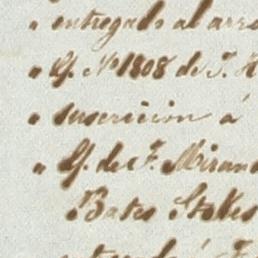 " entregado al arre
" G. Nº 1808 de F. H
" suscricion á
" G. de F. Miran
Bates Stokes